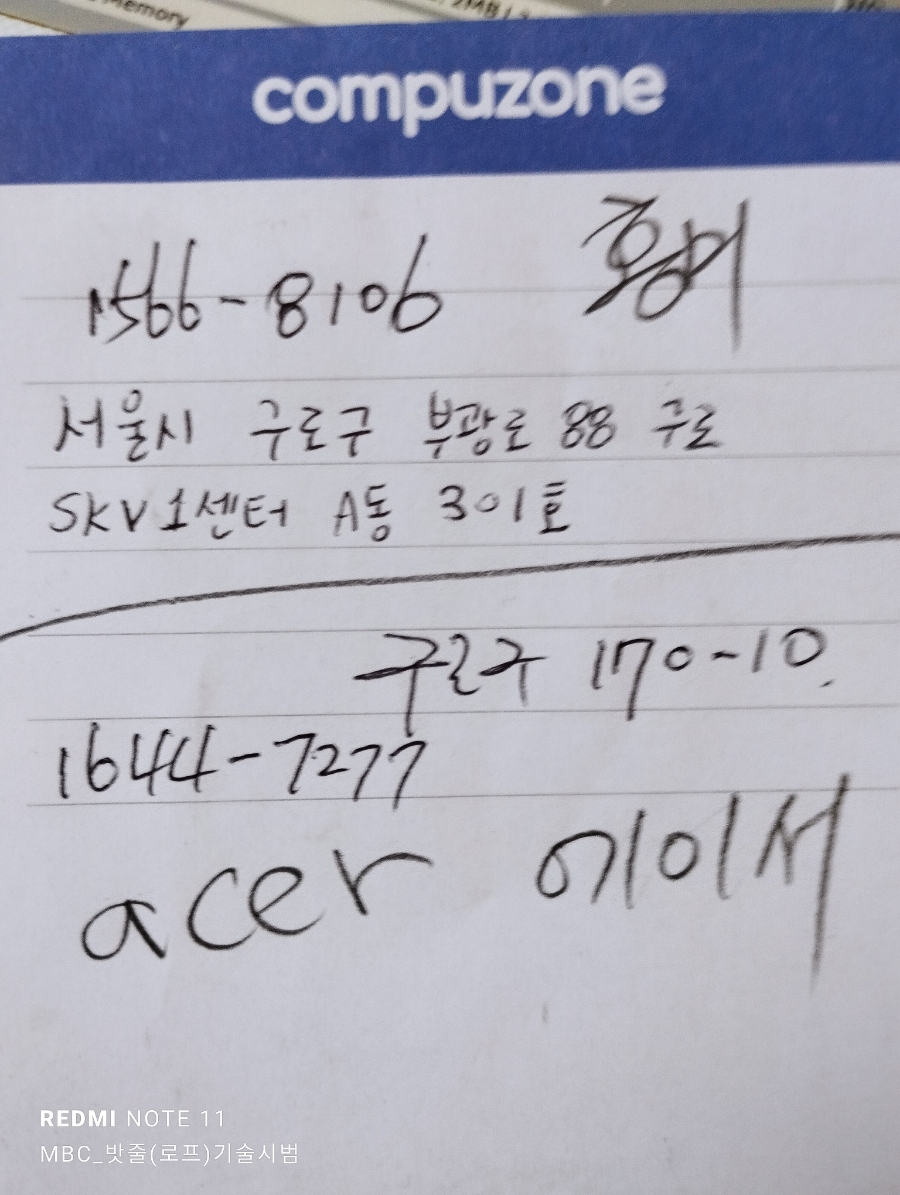 Memory
compuzone
1566-8106
서울시 구로구 부광로 88 구로
SKV1센터 A동 301호
구로구 170-10.
1644-7277
acer 에이서
REDMI NOTE 11
MBC_밧줄(로프)기술시범